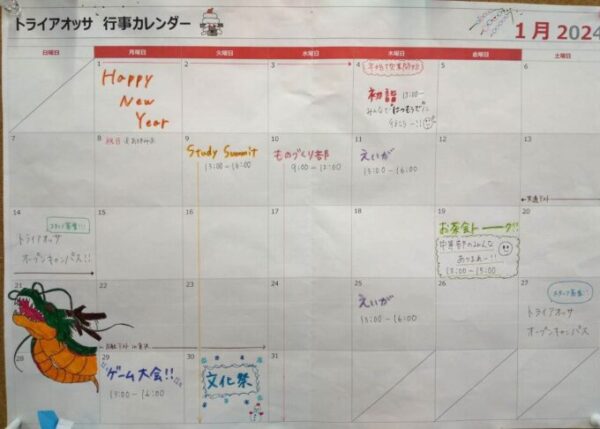 トライアオッサ 行事カレンダー
1月 2024
日曜日 月曜日 火曜日 水曜日 木曜日 金曜日 土曜日
1 2 3 4 5 6
Happy
New
Year
初詣 13:00~
みんなで初もうでに
行こう~!!
7 8 9 10 11 12 13
祝日
Study Summit
13:00~16:00
ものづくり部
9:00~12:00
えいが
13:00~16:00
共通テスト
14 15 16 17 18 19 20
スタッフ募集!!
トライアオッサ
オープンキャンパス!!
お茶会トーーク!!
中等部のみんな
あつまれー!!
13:00~15:00
21 22 23 24 25 26 27
えいが
13:00~16:00
スタッフ募集!!
トライアオッサ
オープンキャンパス
28 29 30 31
ゲーム大会!!
13:00~16:00
文化祭